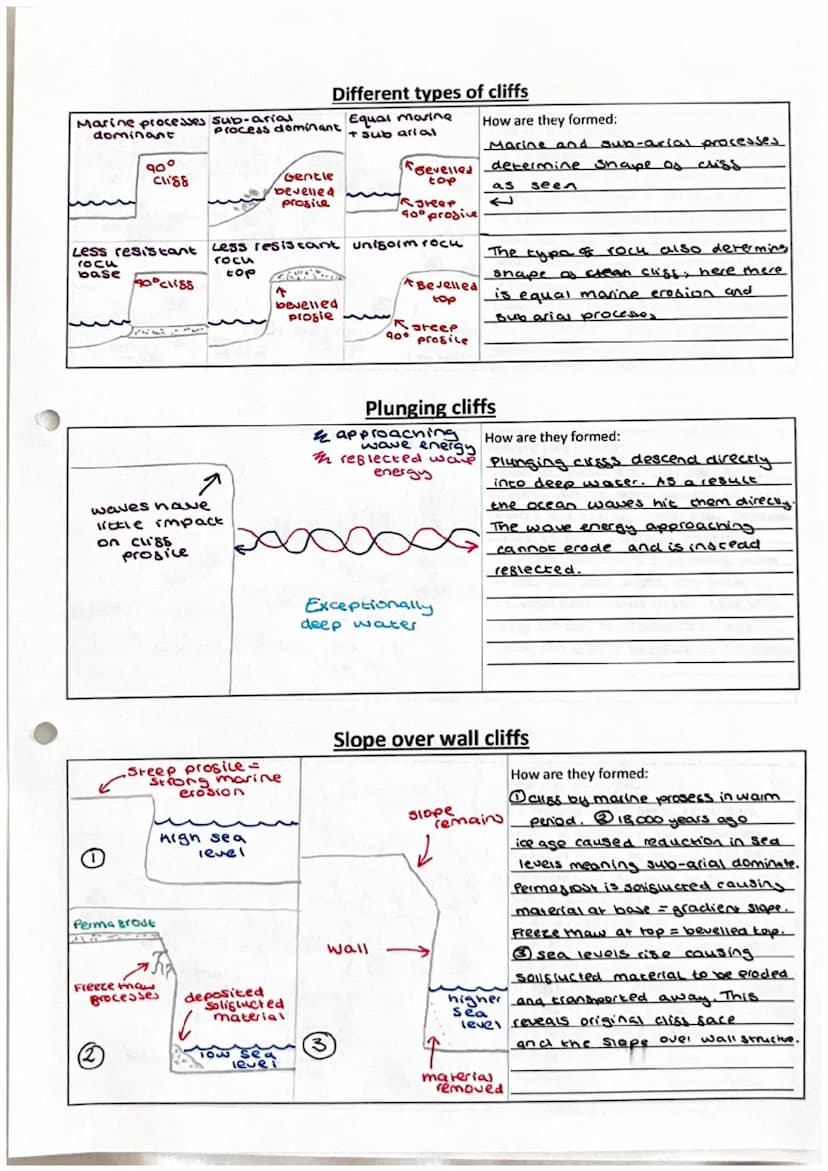 Different types of cliffs
Marine processes
dominant
90°
cliff
sub-arial
process dominant
Gentle
bevelled
profile
Equal marine
+ sub arial
Bevelled
top
steep
90° profile
Less resistant
rock
base
90° cliff
Less resistant
rock
top
bevelled
profile
uniform rock
Bevelled
top
steep
90° profile
How are they formed:
Marine and sub-arial processes
determine shape of cliff
as seen
The type of rock also determine
shape of cliff, here there
is equal marine erosion and
sub arial processes
Plunging cliffs
approaching
wave energy
reflected wave
energy
waves have
little impact
on cliff
profile
Exceptionally
deep water
How are they formed:
Plunging cliffs descend directly
into deep water. As a result
the ocean waves hit them directly.
The wave energy approaching
cannot erode and is instead
reflected.
Slope over wall cliffs
steep profile =
strong marine
erosion
high sea
level
1
Permafrost
Freeze thaw
processes
deposited
soliflucted
material
low sea
level
2
slope
remains
wall
higher
sea
level
3
material
removed
How are they formed:
① cliff by marine prosecs in warm
period. ② 18,000 years ago
ice age caused reduction in sea
levels meaning sub-arial dominate.
Permafrost is soliflucted causing
material at base = gradient slope.
Freeze thaw at top = bevelled top.
③ sea levels rise causing
soliflucted material to be eroded
and transported away. This
reveals original cliff face
and the slope over wall structure.